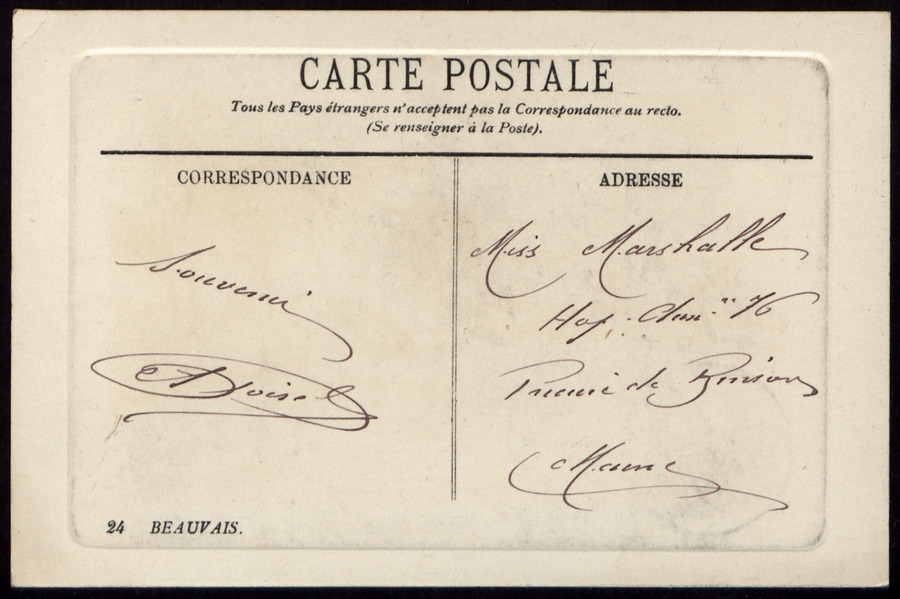 CARTE POSTALE
Tous les Pays étrangers n'acceptent pas la Correspondance au recto.
(Se renseigner à la Poste).
CORRESPONDANCE
Souvenir
ADRESSE
Miss Marshalle
Hop. 76
Prieuré de Binson
Marne
24 BEAUVAIS.